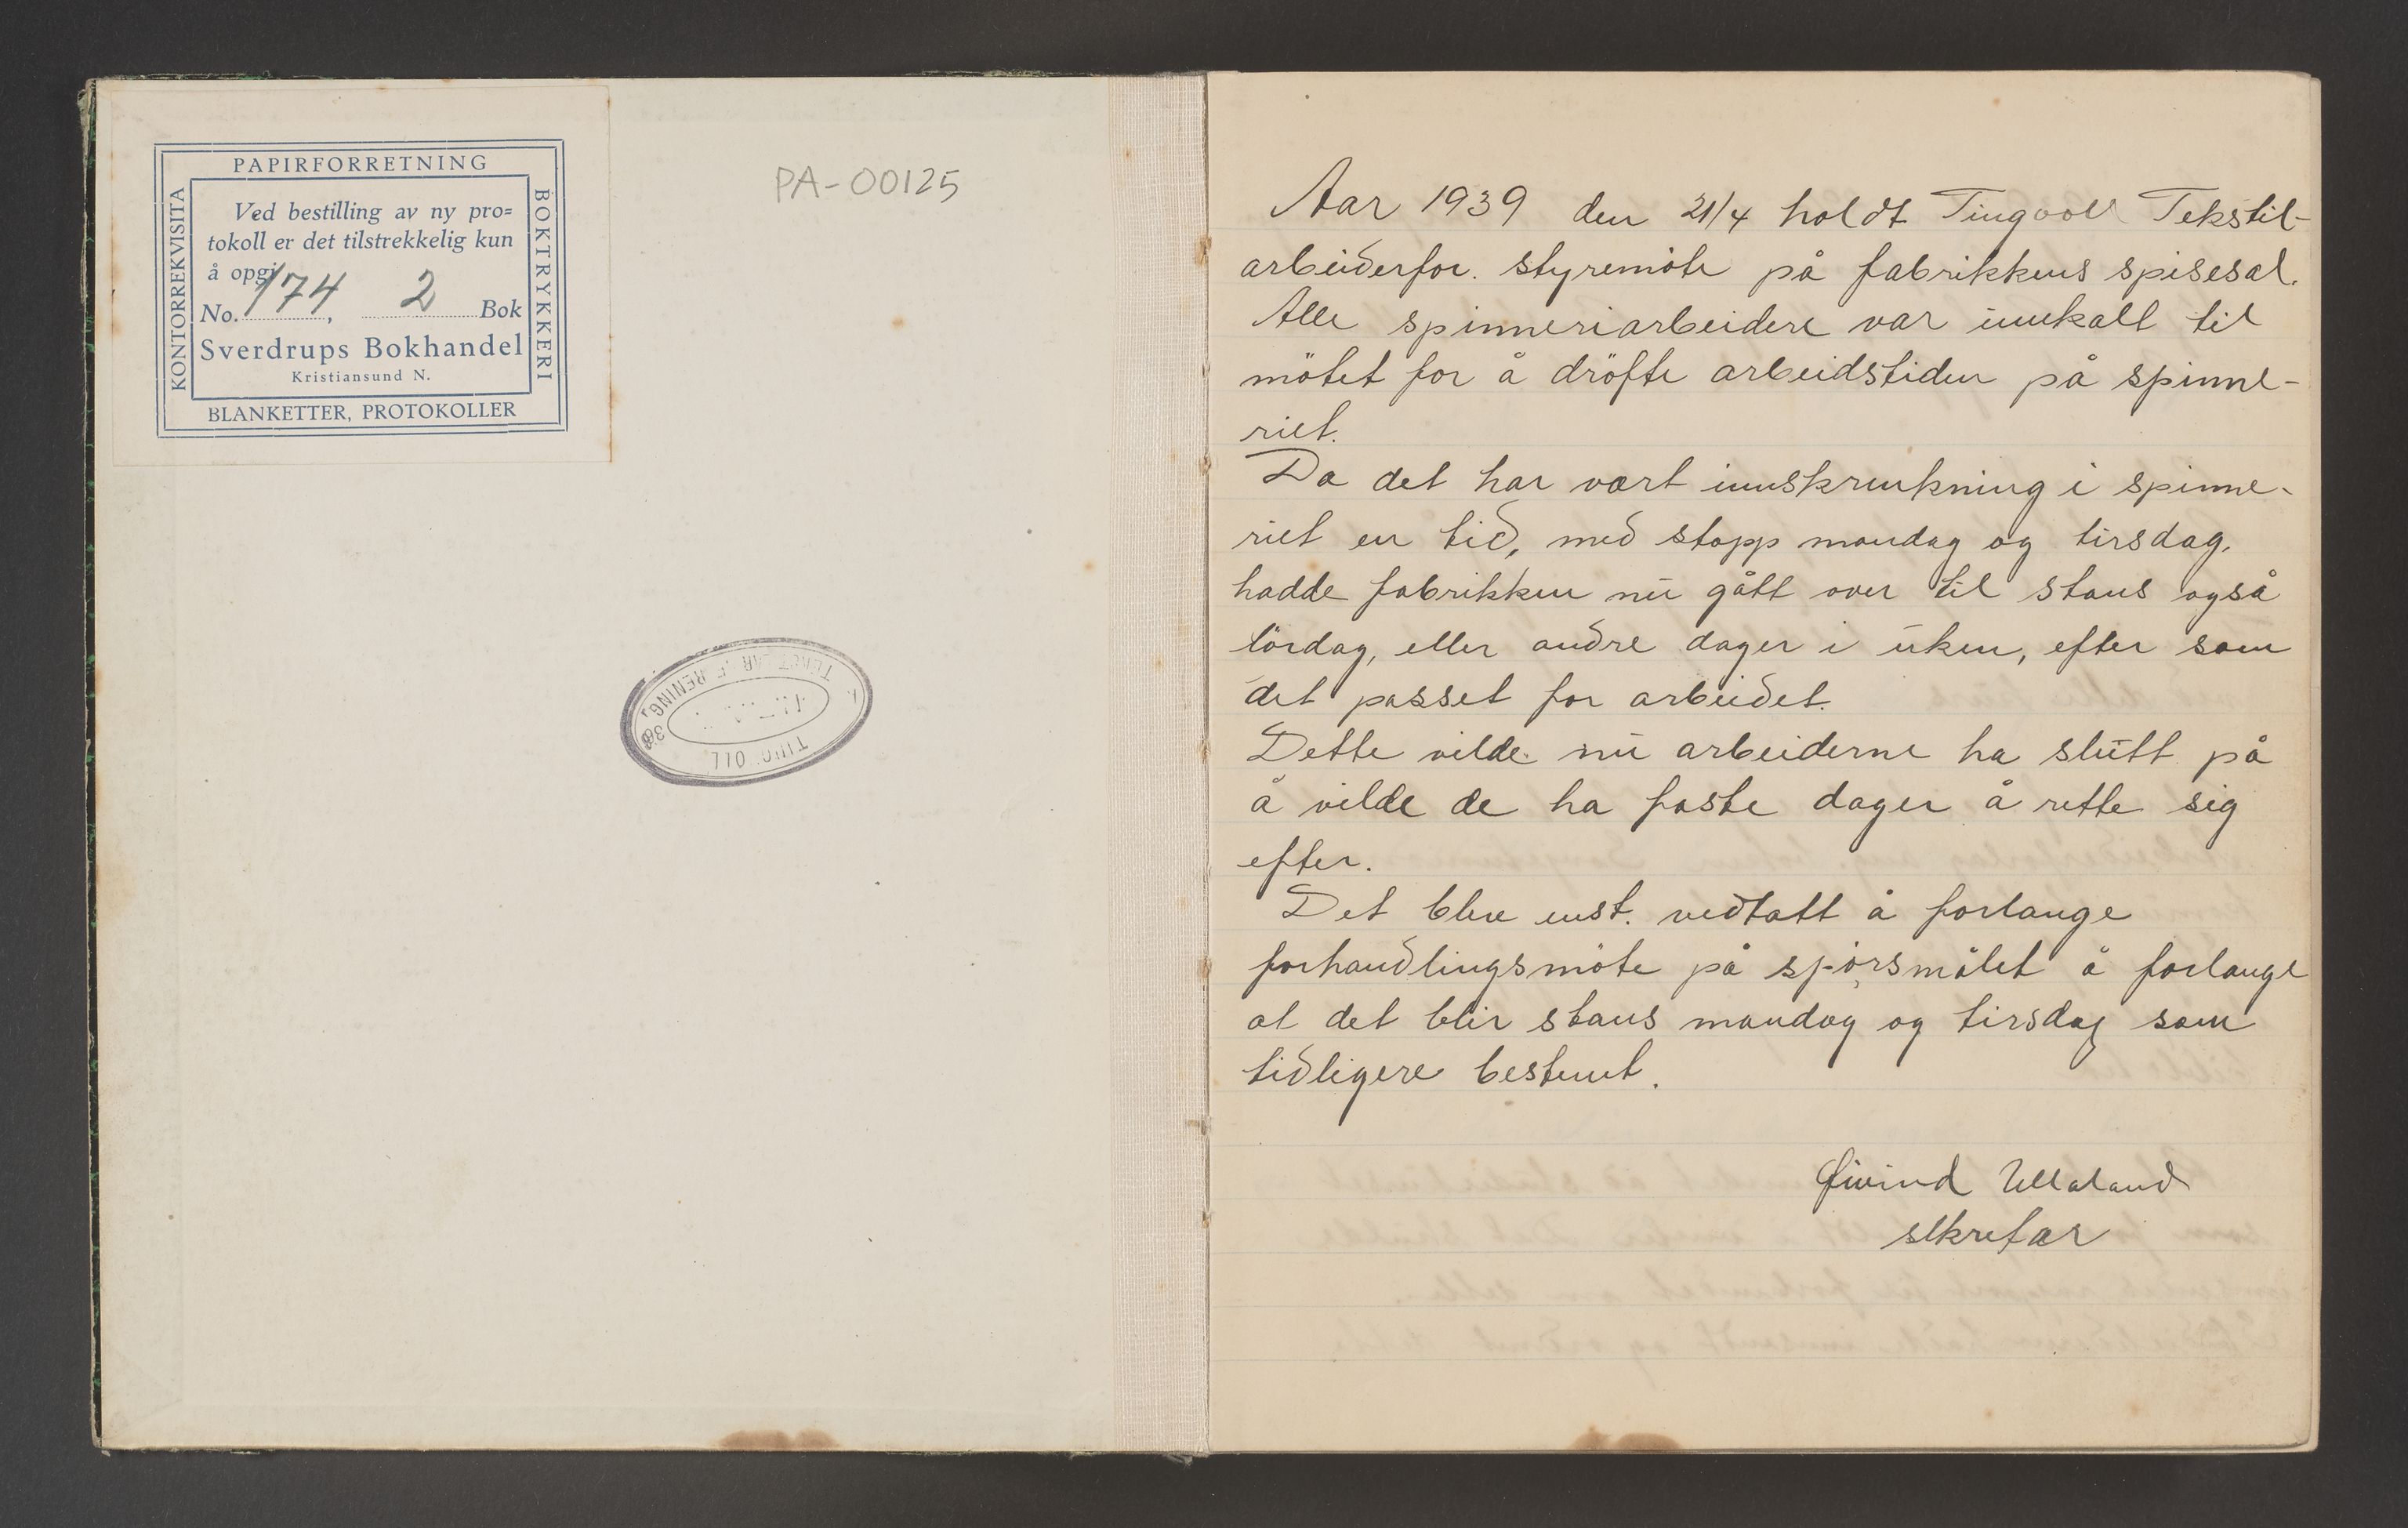 PAPIRFORRETNING
KONTORREKVISITA
BOKTRYKKERI
Ved bestilling av ny pro=
tokoll er det tilstrekkelig kun
å opgi
No. 174, 2 Bok
Sverdrups Bokhandel
Kristiansund N.
BLANKETTER, PROTOKOLLER
PA-00125
Aar 1939 den 21/4 holdt Tingvoll Tekstil-
arbeiderfor. styremöte på fabrikkens spisesal.
Alle spinneriarbeidere var innkalt til
mötet for å dröfte arbeidstiden på spinne-
riet.
Da det har vært innskrenkning i spinne-
riet en tid, med stopp mandag og tirsdag,
hadde fabrikken nu gått over til stans også
lördag, eller andre dager i uken, efter som
det passet for arbeidet.
Dette vilde nu arbeiderne ha slutt på
å vilde de ha faste dager å rette sig
efter.
Det blev enst. vedtatt å forlange
forhandlingsmöte på spörsmålet å forlange
at det blir stans mandag og tirsdag som
tidligere bestemt.
Øivind Ullaland
sekretær